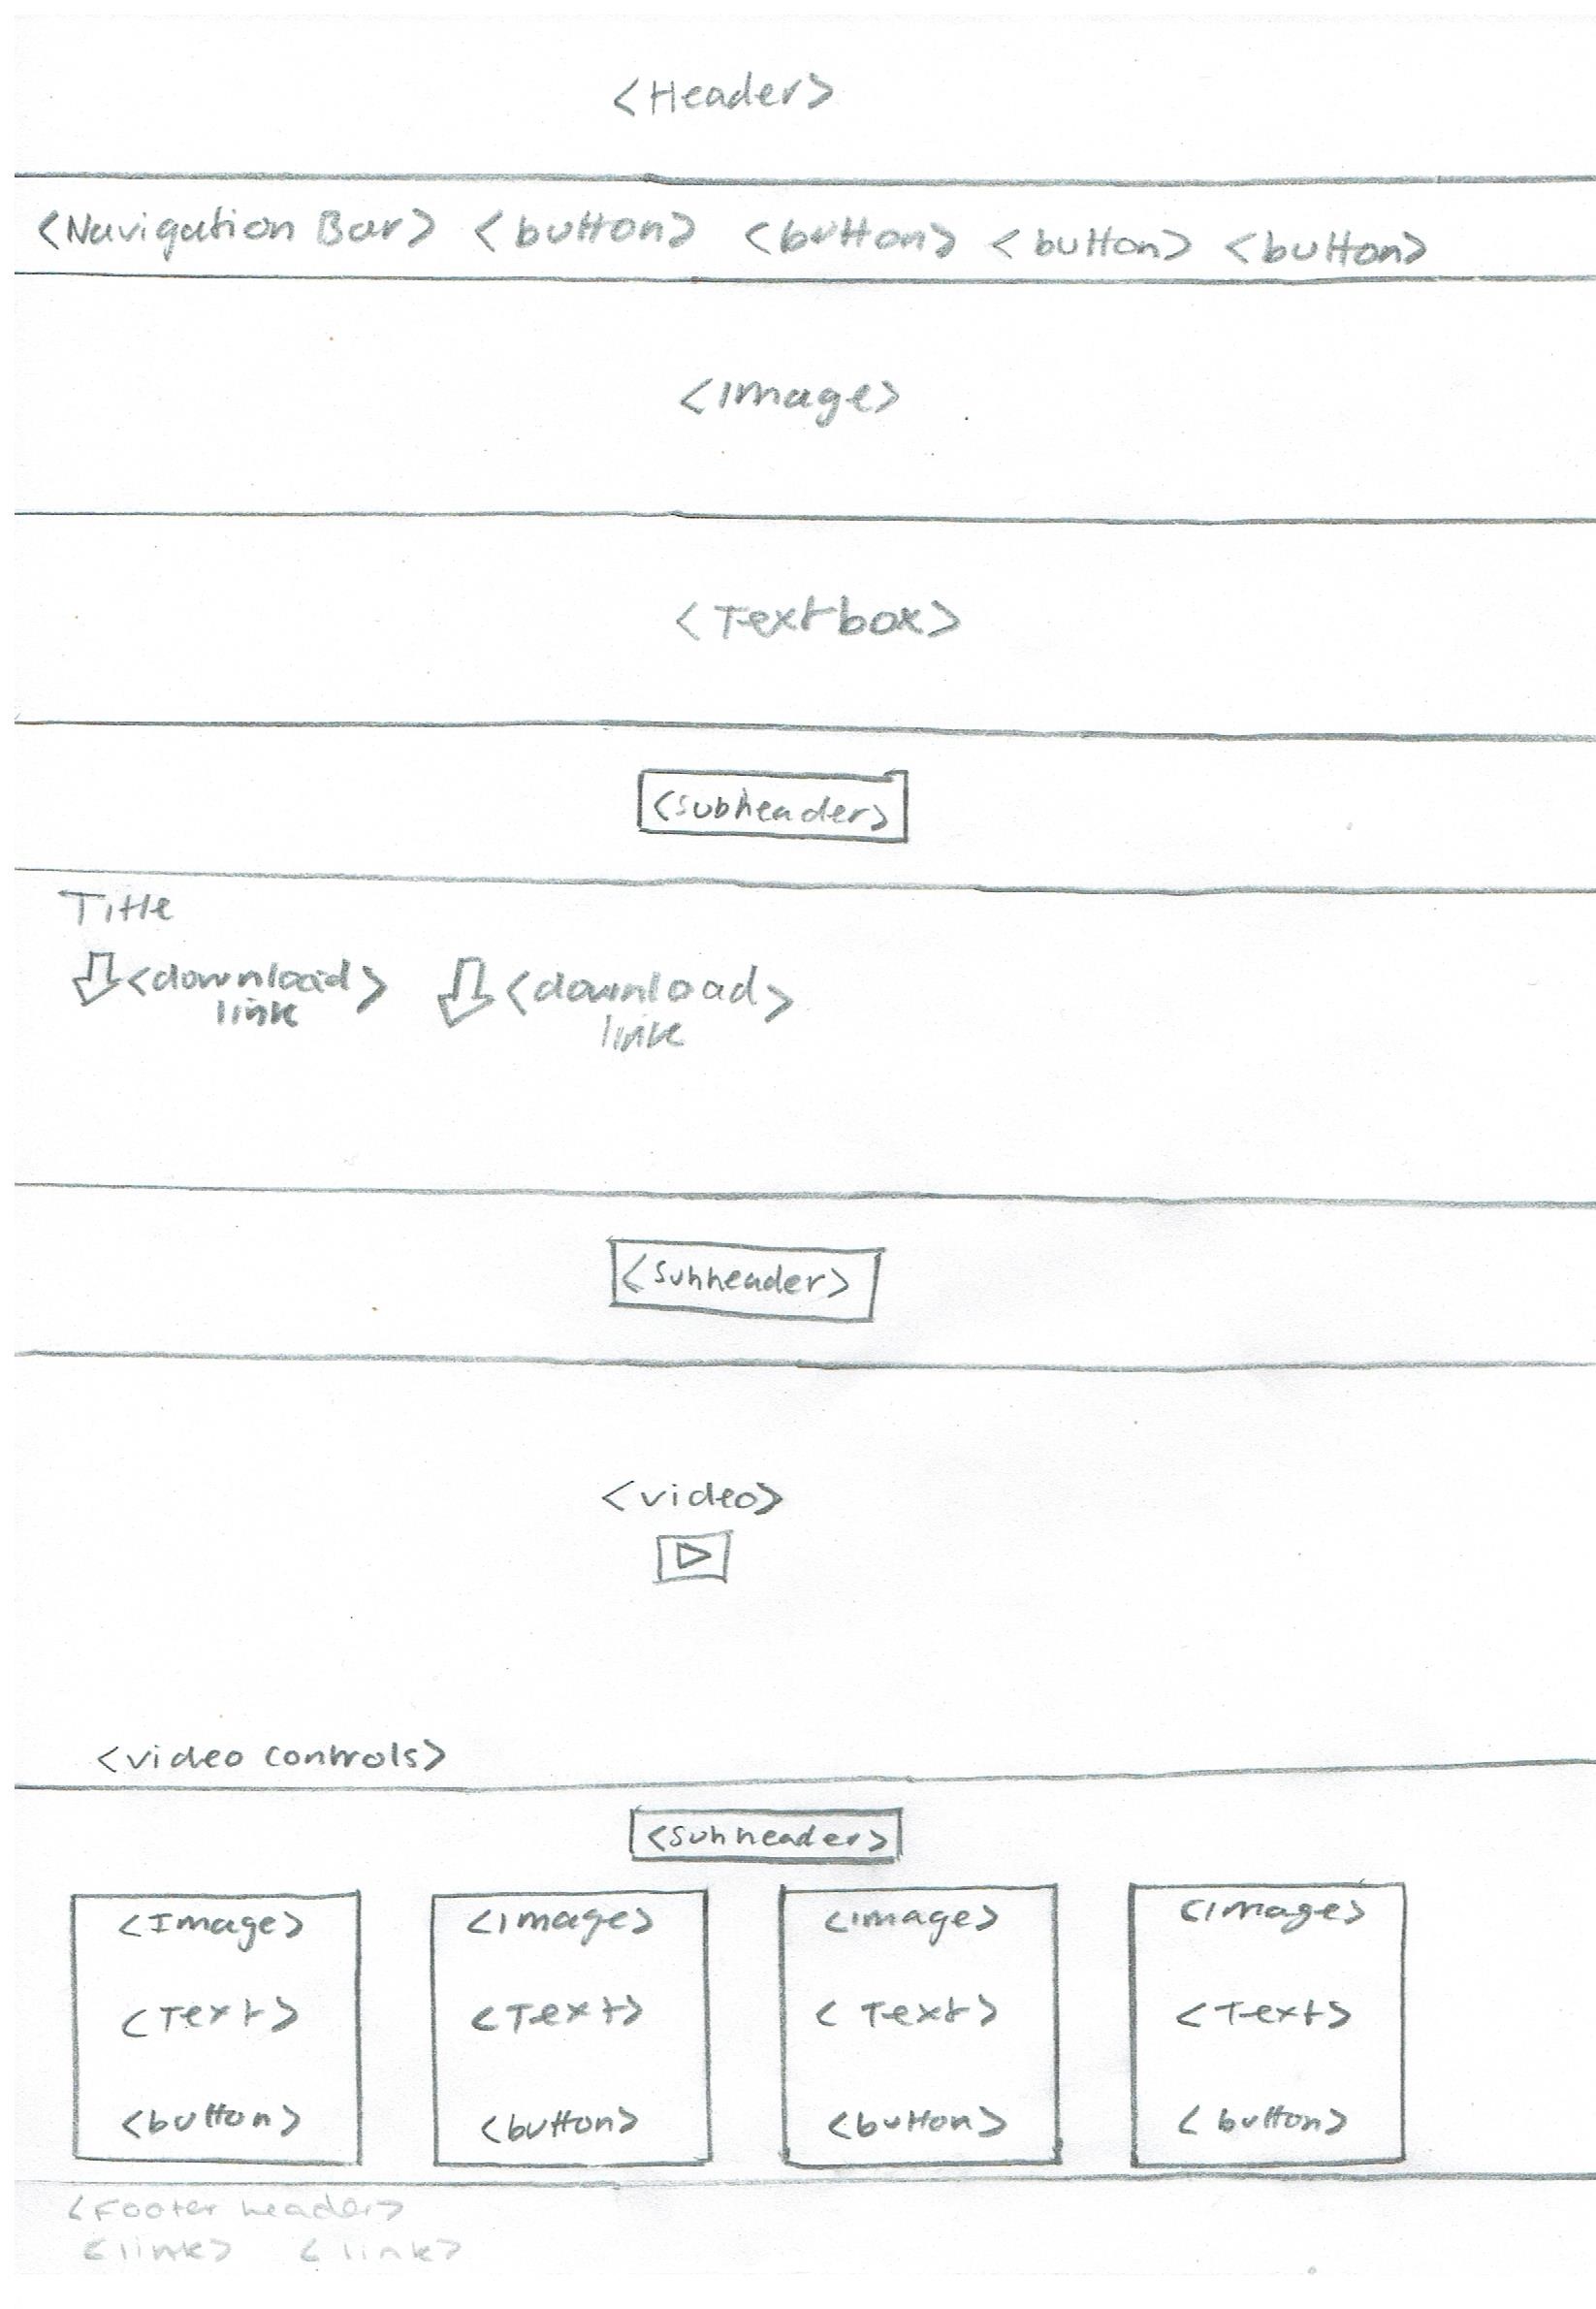 <Header>
<Navigation Bar> <button> <button> <button> <button>
<Image>
<Textbox>
<subheader>
Title
<download> <download>
link link
<subheader>
<video>
<video controls>
<subheader>
<Image> <image> <image> <image>
<Text> <Text> <Text> <Text>
<button> <button> <button> <button>
<Footer header>
<link> <link>